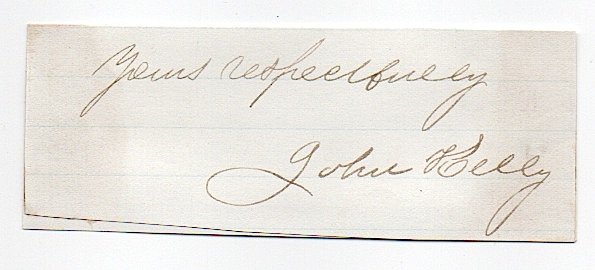 Yours respectfully
John Kelly